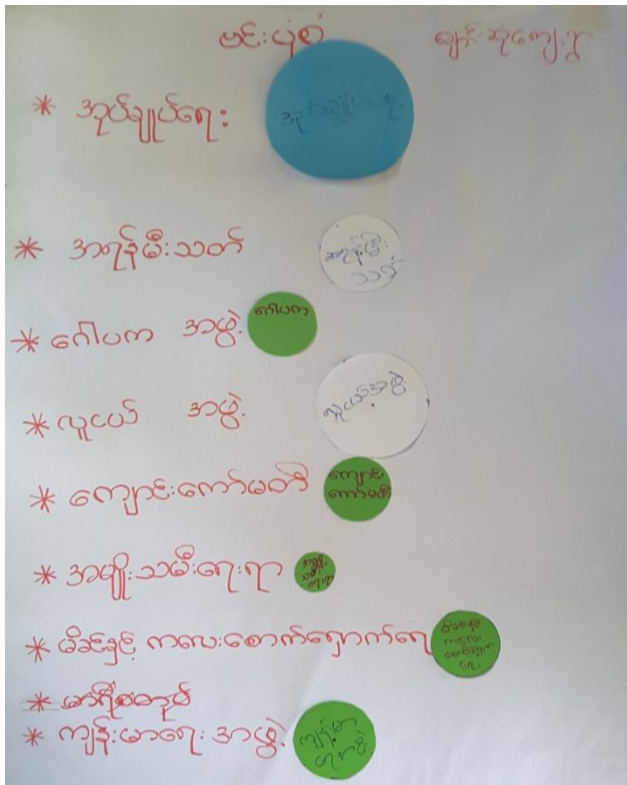 ဗင်းပုံစံ ချောင်းဆုကျေးရွာ
* အုပ်ချုပ်ရေး အုပ်ချုပ်ရေး
* အရန်မီးသတ် အရန်မီးသတ်
* ဂေါပက အဖွဲ့ ဂေါပက
* လူငယ် အဖွဲ့ လူငယ်အဖွဲ့
* ကျောင်းကော်မတီ ကျောင်းကော်မတီ
* အမျိုးသမီးရေးရာ အမျိုးသမီးရေးရာ
* မိခင်နှင့် ကလေးစောက်ရှောက်ရေး
* ကျန်းမာရေး အဖွဲ့ ကျန်းမာရေးအဖွဲ့